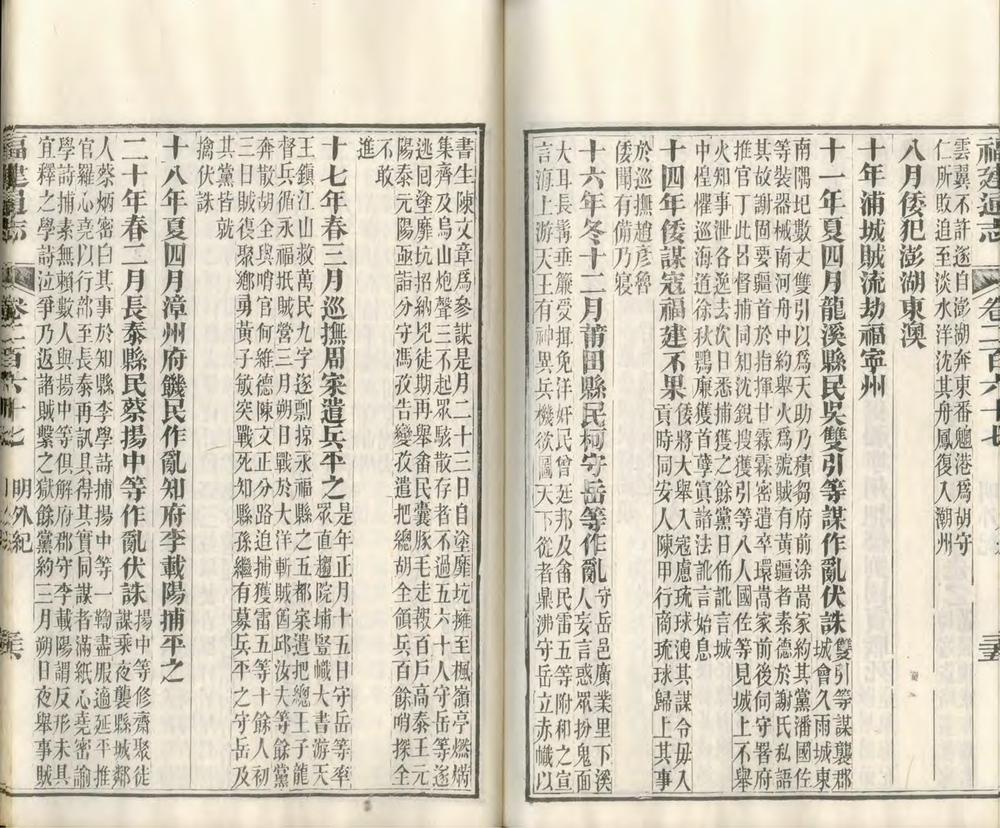 福建通志
卷二百六十七
雲翼不許遂自澎湖奔東番魍港爲胡守
仁所敗追至淡水洋沈其舟鳳復入潮州
八月倭犯澎湖東澳
十年浦城賊流劫福寧州
十一年夏四月龍溪縣民吳雙引等謀作亂伏誅
雙引等謀襲郡
城會久雨城東
南隅圮數丈雙引以爲天助乃積芻府前徐嵩家約其黨潘國佐
等裝器械南河舟中約舉火爲號賊有黃疆者素德於謝氏私語
其故謝固要疆首於指揮甘霖霖密遣卒環嵩家前後伺守署府
推官丁此呂督捕同知沈銳搜獲引等八人國佐等見城上不舉
火知事泄各逸去次日悉捕獲之餘黨日佈訛言城
中惶懼巡海道徐秋鶚廉獲首孽寘諸法訛言始息
十四年倭謀寇福建不果
倭將大舉入寇慮琉球洩其謀令毋入
貢時同安人陳甲行商琉球歸上其事
於巡撫趙彥魯
倭聞有備乃寢
十六年冬十二月莆田縣民柯守岳等作亂
守岳邑廣業里下溪
人妄言惑眾扮鬼面
大耳長髯垂簾受揖免洋奸民曾廷邦及畲民雷五等附和之宣
言海上游天王有神異兵機欲圖天下從者鼎沸守岳立赤幟以
書生陳文章爲參謀是月二十三日自塗靡坑擁至楓嶺亭燃㷳
集齊及烏山炮聲三不起眾駭散存者不過五六十人守岳等遂
逃回塗靡坑招納兇徒期再舉畲民囊豚毛走報百戶高泰王元
陽泰元陽亟詣分守馮孜告變孜遣把總胡全領兵百餘哨探全
不敢
進
十七年春三月巡撫周寀遣兵平之
是年正月十五日守岳等率
眾直趨院埔豎幟大書游天
王鎮江山救萬民九字遂剽掠永福縣之五都寀遣把總王子龍
督兵循永福抵賊營三月朔日戰於大洋斬賊酋邱汝夫等餘黨
奔散胡全與哨官何維德陳文正分路迫捕獲雷五等十餘人初
三日賊復聚鄉勇黃子敏突戰死知縣孫繼有募兵平之守岳及
其黨皆就
擒伏誅
十八年夏四月漳州府饑民作亂知府李載陽捕平之
二十年春二月長泰縣民蔡揚中等作亂伏誅
揚中等修齋聚徒
謀乘夜襲縣城鄰
人蔡炳密白其事於知縣李學詩捕揚中等一鞫盡服適延平推
官羅心堯以行部至長泰再訊具得其實同謀者滿紙心堯密諭
學詩捕素無賴數人與揚中等俱解府郡守李載陽謂反形未具
宜釋之學詩泣爭乃返諸賊繫之獄餘黨約三月朔日夜舉事賊
福建通志
卷二百六十七
明外紀